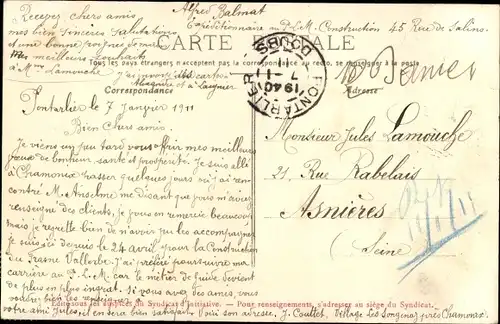 Recevez chers amis,
mes bien sincères salutations
et une bonne
Mes meilleurs souhaits
à Mme Lamouche
Alfred Balmat
Expéditionnaire au P-L-M- Construction 45 Rue de Salins
CARTE POSTALE
Tous les pays étrangers n'acceptent pas la correspondance au recto, se renseigner à la poste
J'ai envoyé des cartes
Correspondance
Adresse
PONTARLIER
DOUBS
7 -1
1940
Pontarlier le 7 Janvier 1911
Bien chers amis.
Je viens un peu tard vous offrir mes meilleurs
vœux de bonheur, santé et prospérité. Je suis allé
à Chamonix passer quelques jours où j'ai ren-
contré M. Anselme me disant que puis m'avoir
renseigné des clients, je vous en remercie beaucoup
mais je regrette bien de n'avoir pu les accompagner
Je suis ici depuis le 24 avril pour la Construction
du Frasne Vallorbe. J'ai préféré poursuivre ma
carrière au P-L-M- car le métier de Guide devient
de plus en plus ingrat. Si vous avez des amis, vous
Monsieur Jules Lamouche
21, Rue Rabelais
Asnières
(Seine)
Edité sous les auspices du Syndicat d'Initiative. — Pour renseignements, s'adresser au siège du Syndicat.
en sera bien satisfait. Voici son adresse. J. Couttet, Village Les près Chamonix